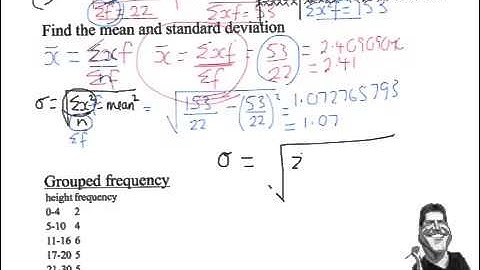 Σf = 22 Σxf = 53 Σx²f = 153
Find the mean and standard deviation
x̄ = Σxf/Σf x̄ = Σxf/Σf = 53/22 = 2.409090
= 2.41
σ = √(Σx²f/n − mean²) = √(153/22 − (53/22)²) = 1.072765793
Σf = 1.07
σ = √Σ
Grouped frequency
height frequency
0-4 2
5-10 4
11-16 6
17-20 5
21-30 5